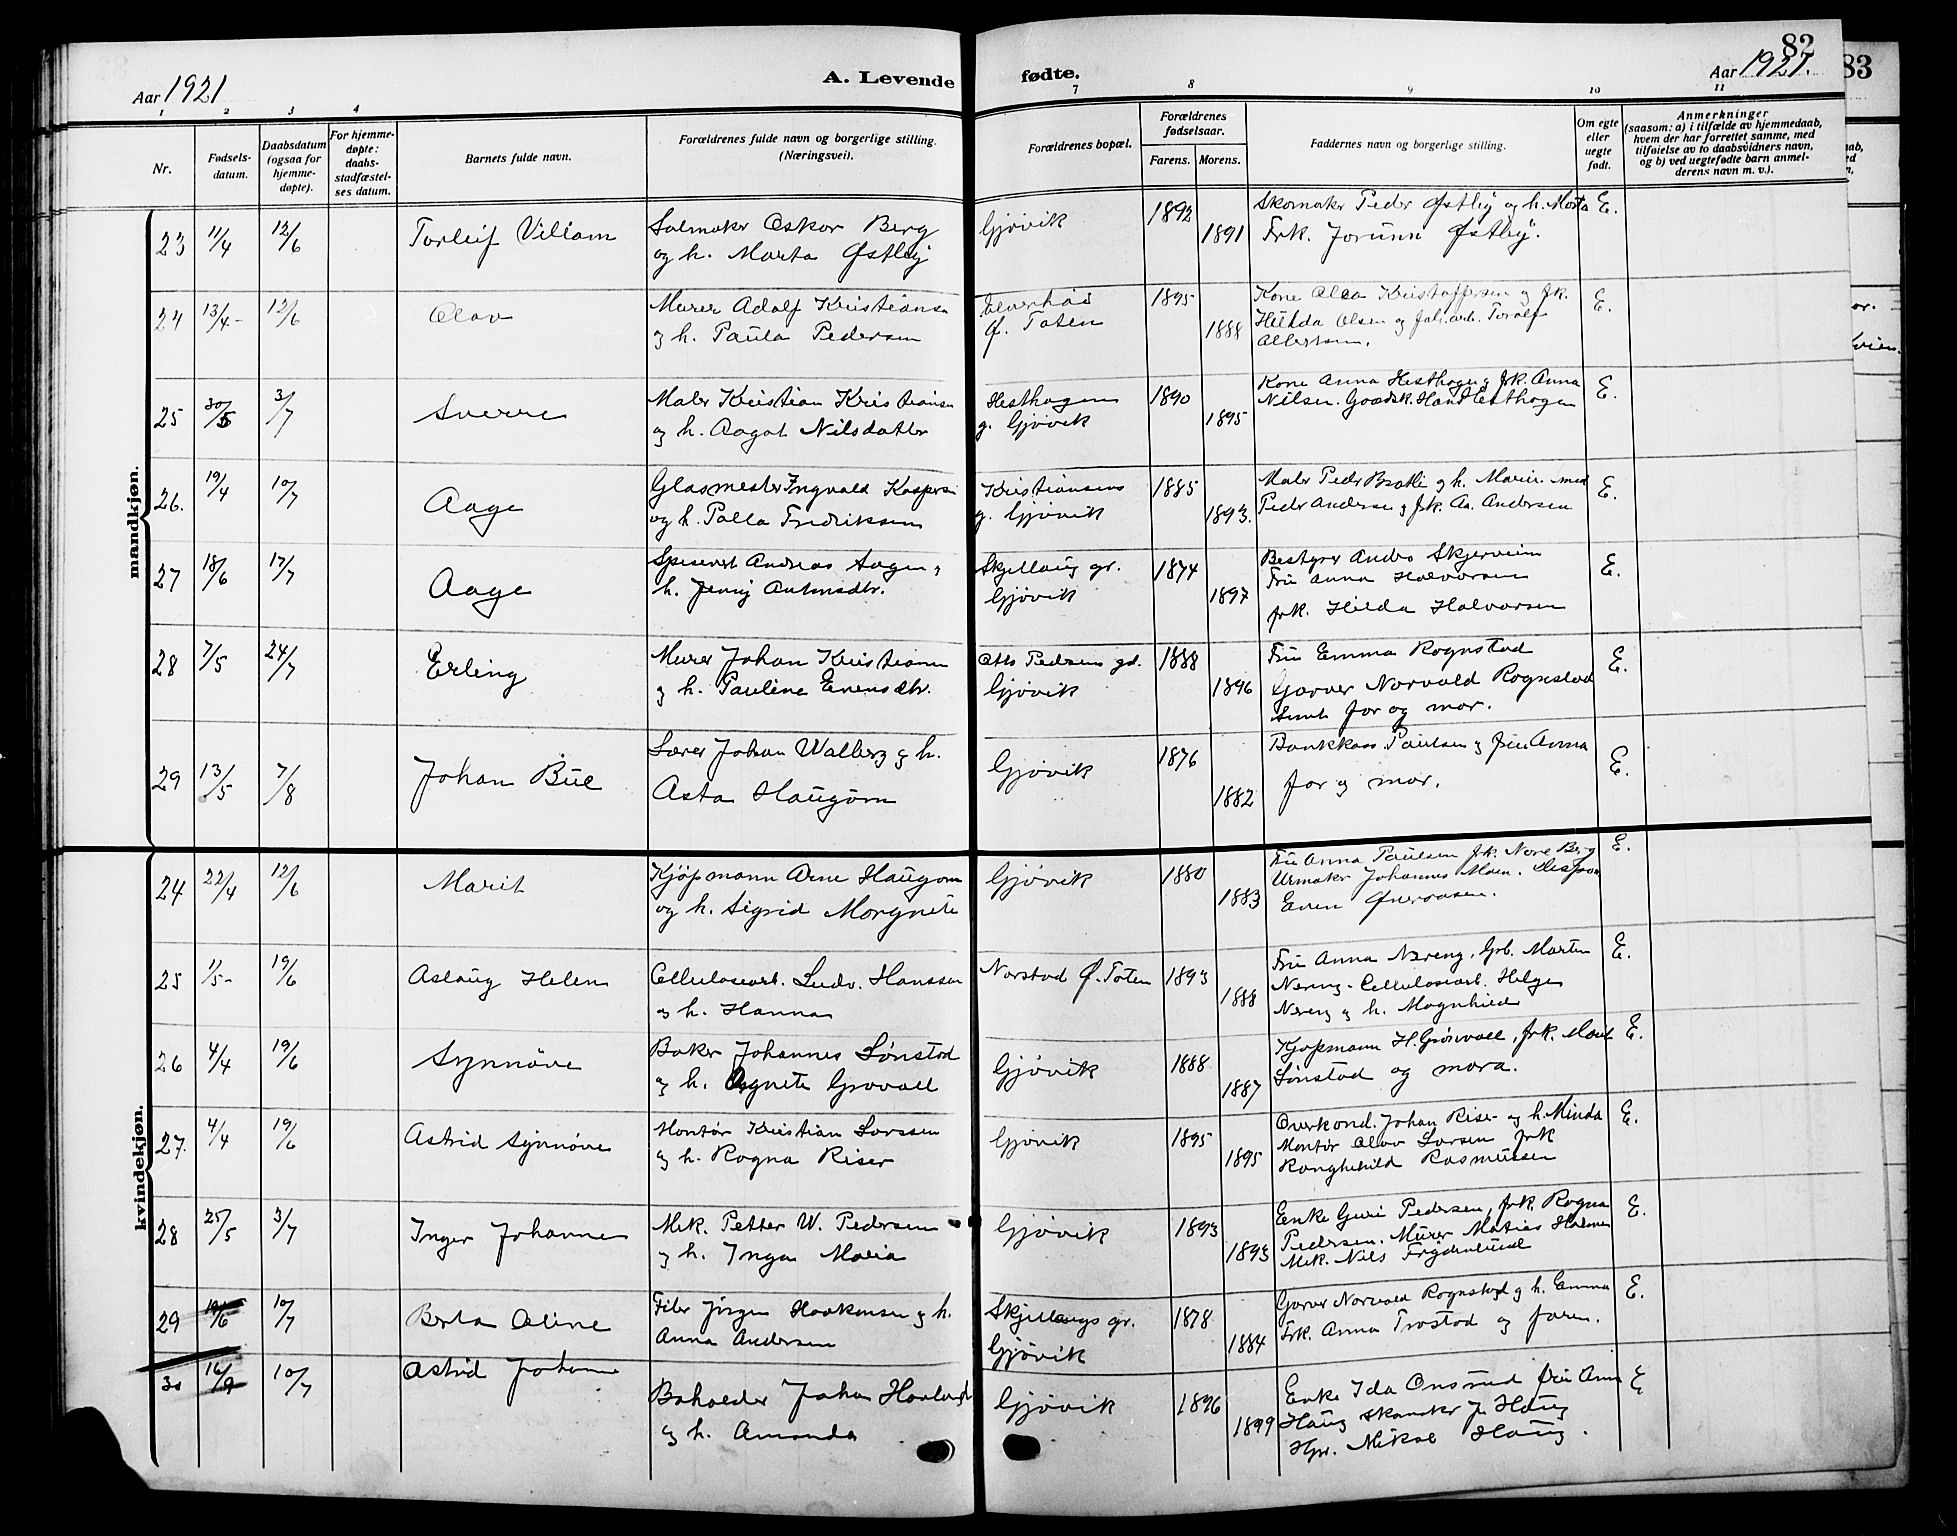 82
83
Aar 1921
A. Levende
fødte.
Aar 1921.
1 2 3 4 7 8 9 10 11
Nr.
Fødsels-
datum.
Daabsdatum
(ogsaa for
hjemme-
døpte).
For hjemme-
døpte:
daabs-
stadfæstel-
ses datum.
Barnets fulde navn.
Forældrenes fulde navn og borgerlige stilling.
(Næringsvei).
Forældrenes bopæl.
Forældrenes
fødselsaar.
Farens. Morens.
Faddernes navn og borgerlige stilling.
Om egte
eller
uegte
født.
Anmerkninger
(saasom: a) i tilfælde av hjemmedaab,
hvem der har forrettet samme, med
tilføielse av to daabsvidners navn,
og b) ved uegtefødte barn anmel-
derens navn m. v.).
mandkjøn.
23 11/4 12/6 Torleif Villiam
Salmaker Oskar Berg
og h. Marta Østby
Gjøvik
1892 1891
Skomaker Peder Østby og h. Marta
Frk. Jorunn Østby.
E.
24 13/4 12/6 Olav
Murer Adolf Kristiansen
og h. Paula Pedersen
Ø. Toten
1895 1888
Kone Olea Kristoffersen og frk.
Hulda Olsen og fab.arb. Toralf
Albertsen.
E.
25 30/5 3/7 Sverre
Maler Kristian Kristiansen
og h. Aagot Nilsdatter
Hesthagen
g. Gjøvik
1890 1895
Kone Anna Hesthagen, frk. Anna
Nilsen. Gaardsk. Hans Hesthagen
E.
26. 19/4 10/7 Aage
Glasmester Ingvald Kaspersen
og h. Palla Fredriksen
Kristiansens
g. Gjøvik
1885 1893.
Maler Peder Bratli og h. Marie.
Peder Andersen og frk. Aa. Andersen
E.
27 18/6 17/7 Aage
Spisevert Andreas Aagen og
h. Jenny Antonsdtr.
Skjellaug gr.
Gjøvik
1874 1897
Bestyrer Anders Skjerveim
Fru Anna Halvorsen
frk. Hilda Halvorsen
E.
28 7/5 24/7 Erling
Murer Johan Kristiansen
og h. Pauline Evensdtr.
Otto Pedersens gd.
Gjøvik
1888 1896
Fru Emma Rognstad
Garver Norvald Rognstad
samt far og mor.
E.
29 13/5 7/8 Johan Bue
Lærer Johan Walberg og h.
Asta Haugom
Gjøvik
1876 1882
Bankkass. Paulsen og fru Anna
far og mor.
E.
kvindekjøn.
24 22/4 12/6 Marit
Kjøpmann Arne Haugom
og h. Sigrid Morgnete
Gjøvik
1880 1883
Fru Anna Paulsen frk. Nore Berg
Urmaker Johannes Moen.
Even Øveraasen.
E.
25 11/5 19/6 Aslaug Helen
Cellulosearb. Ludv. Hanssen
og h. Hanna
Narstad Ø. Toten
1893 1888
Fru Anna Næreng. Grb. Martin
Næreng. Cellulosearb. Helge
Næreng og h. Magnhild
E.
26 4/4 19/6 Synnøve
Baker Johannes Lønstad
og h. Agnete Gravoll
Gjøvik
1888 1887
Kjøpmann H. Grønvoll, frk. Marit
Lønstad og mora.
E.
27. 4/4 19/6 Astrid Synnøve
Montør Kristian Larssen
og h. Ragna Riser
Gjøvik
1895 1895
Overkond. Johan Riser og h. Minda
Montør Olav Larsen frk
Ranghhild Rasmussen
E.
28 25/5 3/7 Inger Johanne
Mek. Petter W. Pedersen
og h. Inga Maria
Gjøvik
1893 1893
Enke Guri Pedersen, frk. Ragna
Pedersen. Murer Matias Halmen
Mek. Nils Frydenlund
E.
29 19/6 10/7 Berta Oline
Filer Jørgen Haakensen og h.
Anna Andersen
Skjellaugs gr.
Gjøvik
1878 1884
Garver Norvald Rognstad og h. Emma
Frk. Anna Trostad og faren.
E.
30 10/7 Astrid Johanne
Bokholder Johan
og h. Amanda
Gjøvik
1896 1899
Enke Ida Onsrud fru Anna
Haug skomaker J. Haug
Hr. Mikal Haug.
E